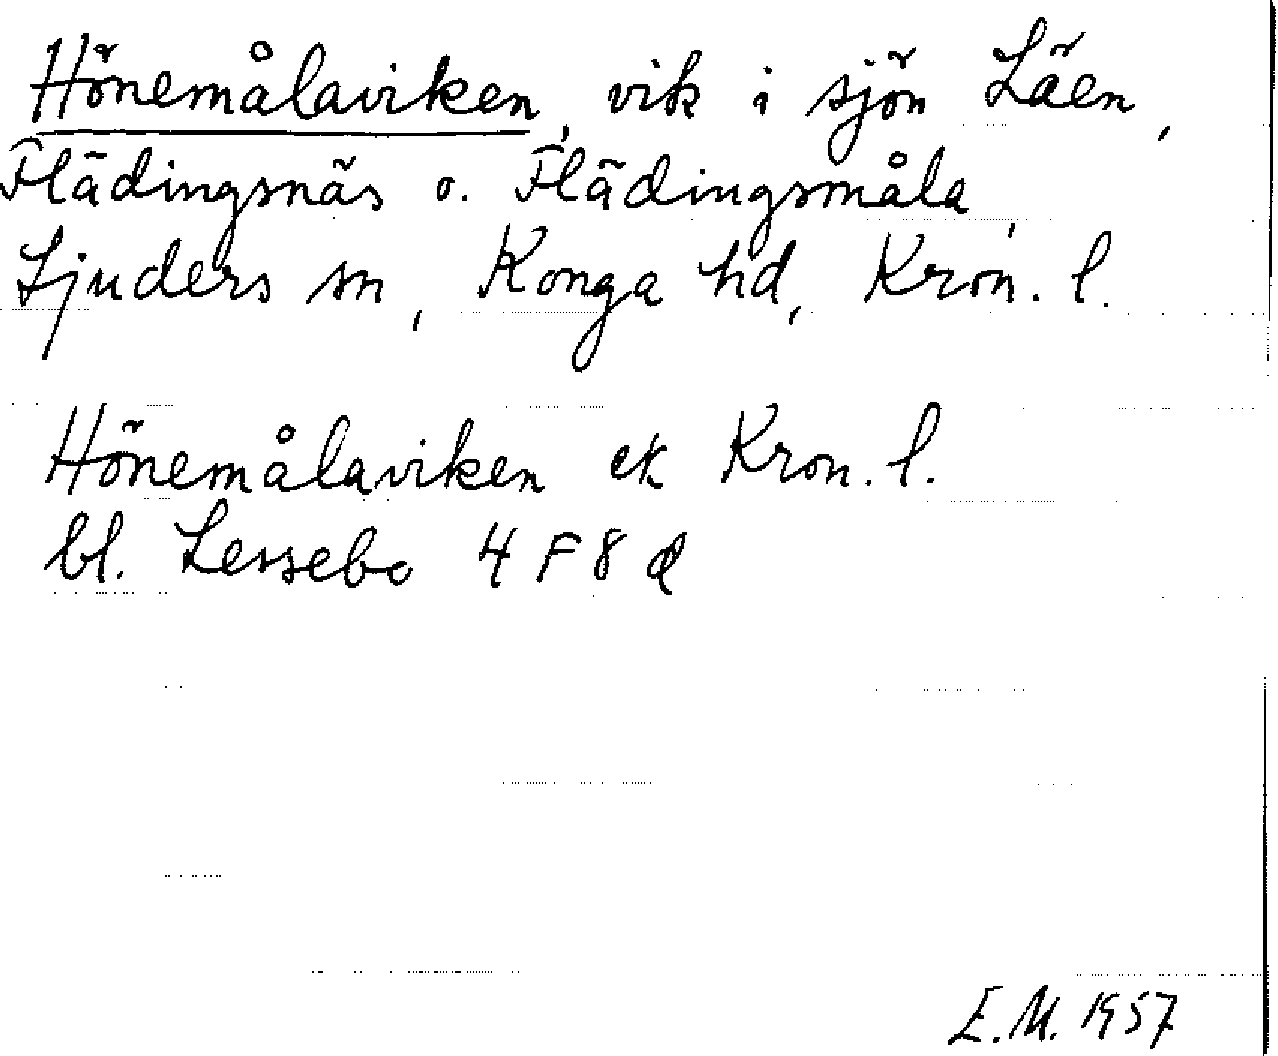 Hönemålaviken, vik i sjön Läen,
Flädingsnäs o. Flädingsmåla,
Ljuders sn, Konga hd, Kron. l.
Hönemålaviken ek Kron. l.
bl. Lessebo 4 F 8 d
E.M. 1957